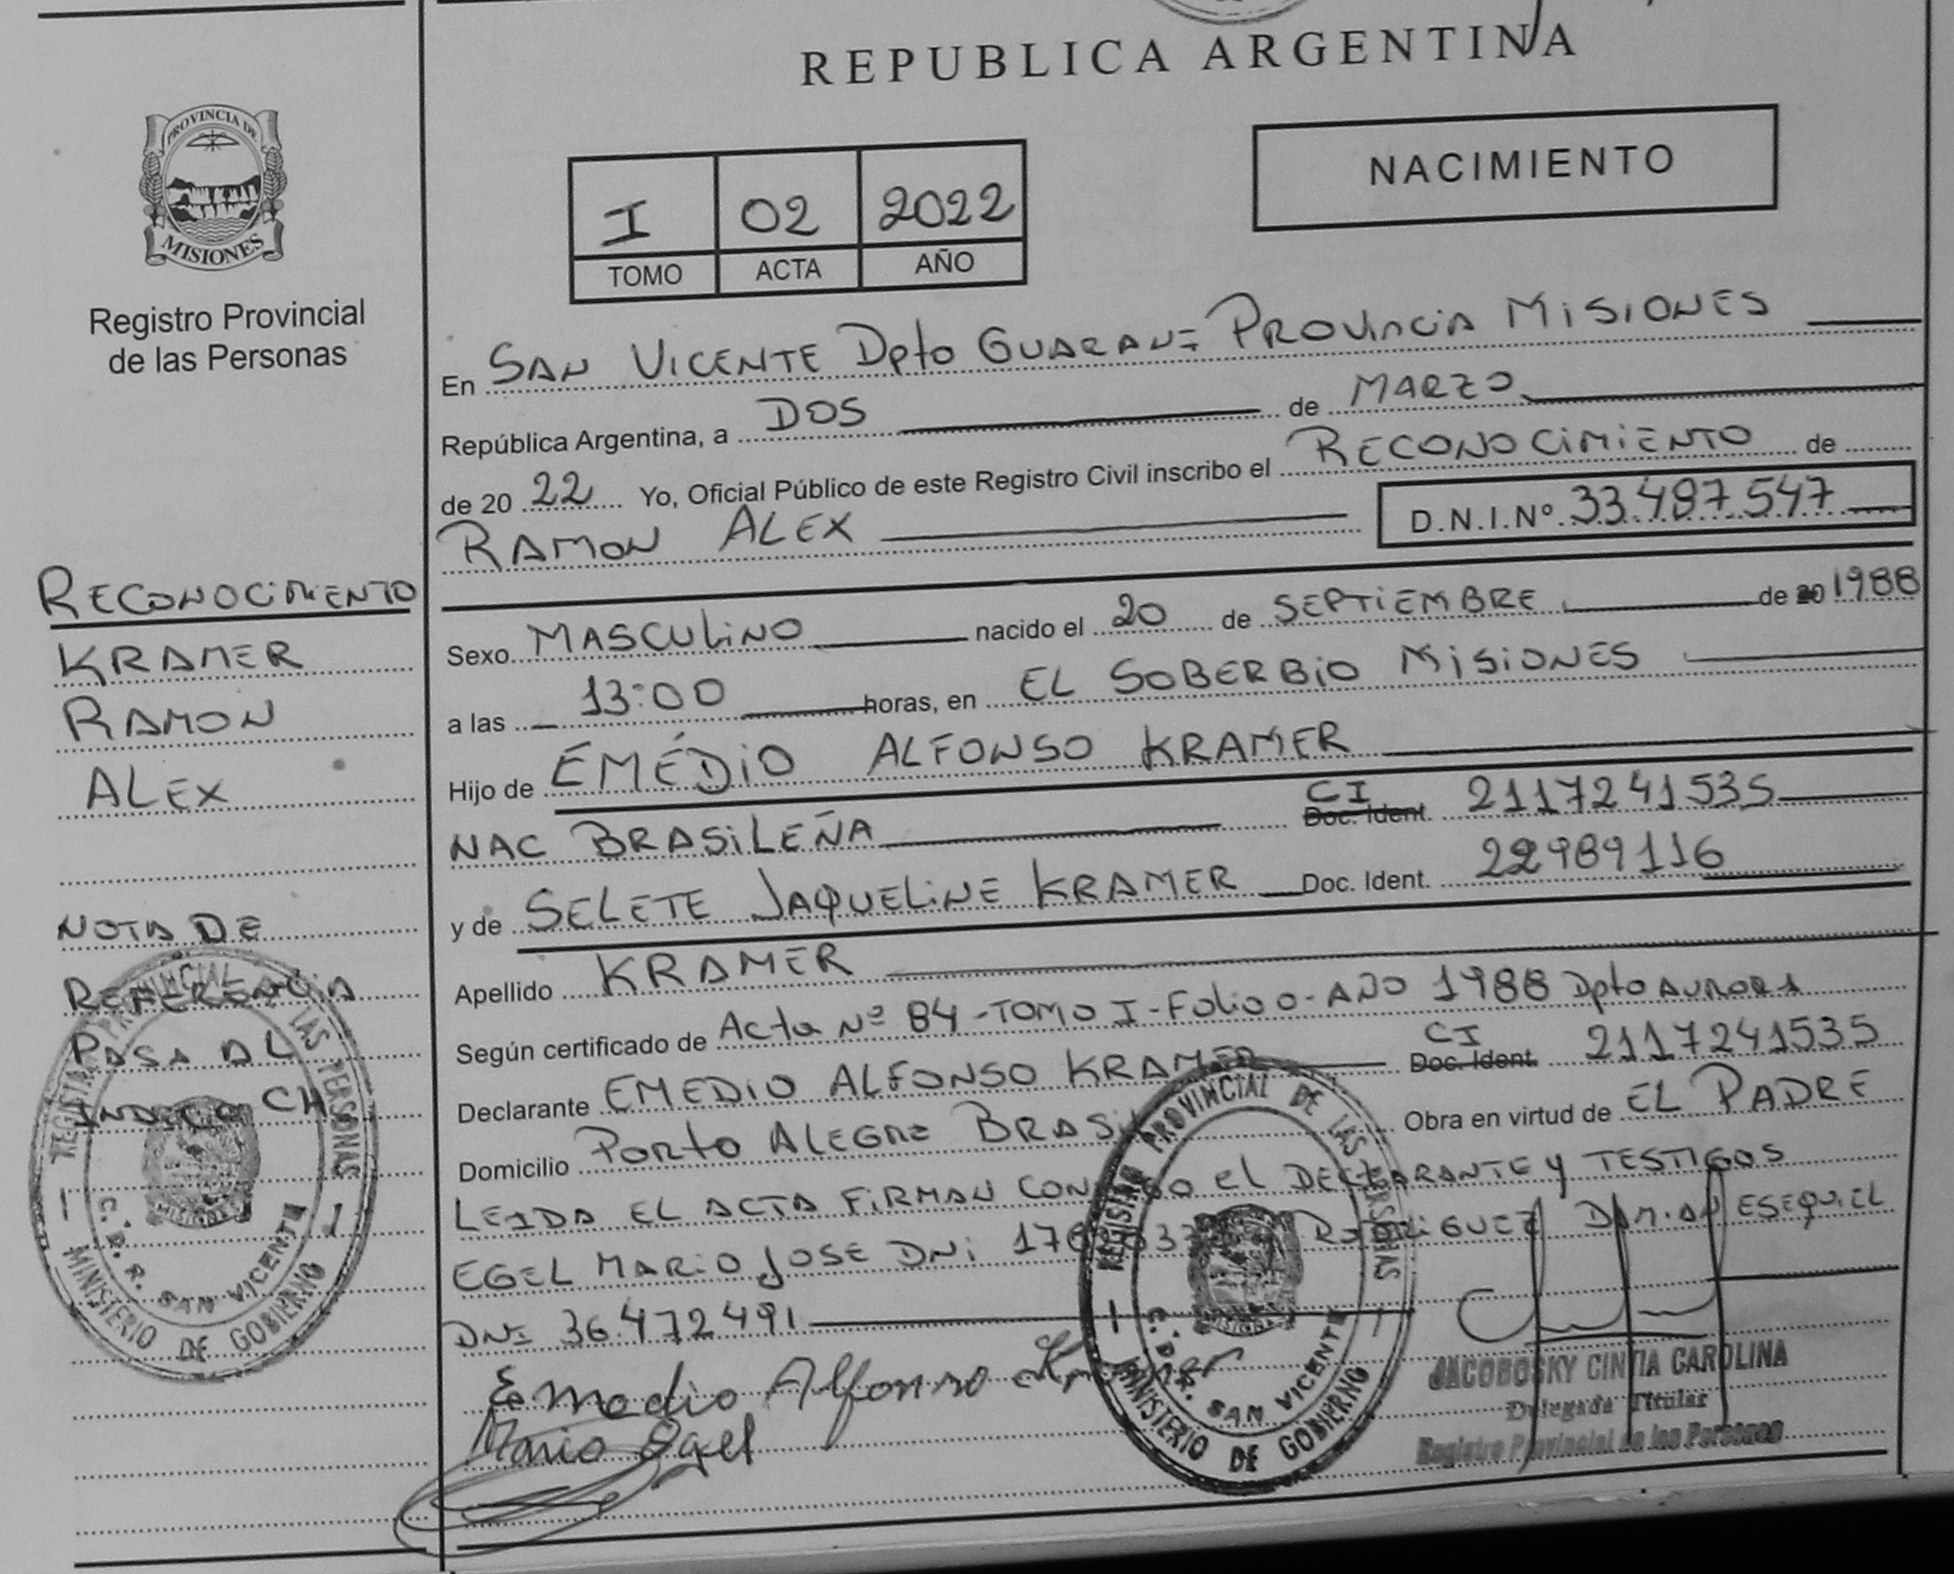 REPUBLICA ARGENTINA
PROVINCIA DE
MISIONES
Registro Provincial
de las Personas
I 02 2022
TOMO ACTA AÑO
NACIMIENTO
En SAN VICENTE Dpto GUARANI PROVINCIA MISIONES
República Argentina, a DOS de MARZO
de 20 22 Yo, Oficial Público de este Registro Civil inscribo el RECONOCIMIENTO de
RAMON ALEX D.N.I.Nº 33.487.547
RECONOCIMIENTO
KRAMER
RAMON
ALEX
NOTA DE
REFERENCIA
PASA AL
INDICE CH
Sexo MASCULINO nacido el 20 de SEPTIEMBRE de 20 1988
a las 13:00 horas, en EL SOBERBIO MISIONES
Hijo de EMÉDIO ALFONSO KRAMER
NAC BRASILEÑA CI Doc. Ident. 2117241535
y de SELETE JAQUELINE KRAMER Doc. Ident. 22989116
Apellido KRAMER
Según certificado de Acta Nº 84-TOMO I-Folio 0-AÑO 1988 Dpto AURORA
Declarante EMEDIO ALFONSO KRAMER CI Doc. Ident. 2117241535
Domicilio PORTO ALEGRE BRASIL Obra en virtud de EL PADRE
LEIDA EL ACTA FIRMAN CONMIGO el DECLARANTE Y TESTIGOS
EGEL MARIO JOSE DNI RODRIGUEZ DAMIAN ESEQUIEL
DNI 36.472491
Emedio Alfonso Kramer
Mario Egel
REGISTRO PROVINCIAL DE LAS PERSONAS
C.D.R. SAN VICENTE
MINISTERIO DE GOBIERNO
REGISTRO PROVINCIAL DE LAS PERSONAS
MISIONES
C.D.R. SAN VICENTE
MINISTERIO DE GOBIERNO
JACOBOSKY CINTIA CAROLINA
Delegada Titular
Registro Provincial de las Personas